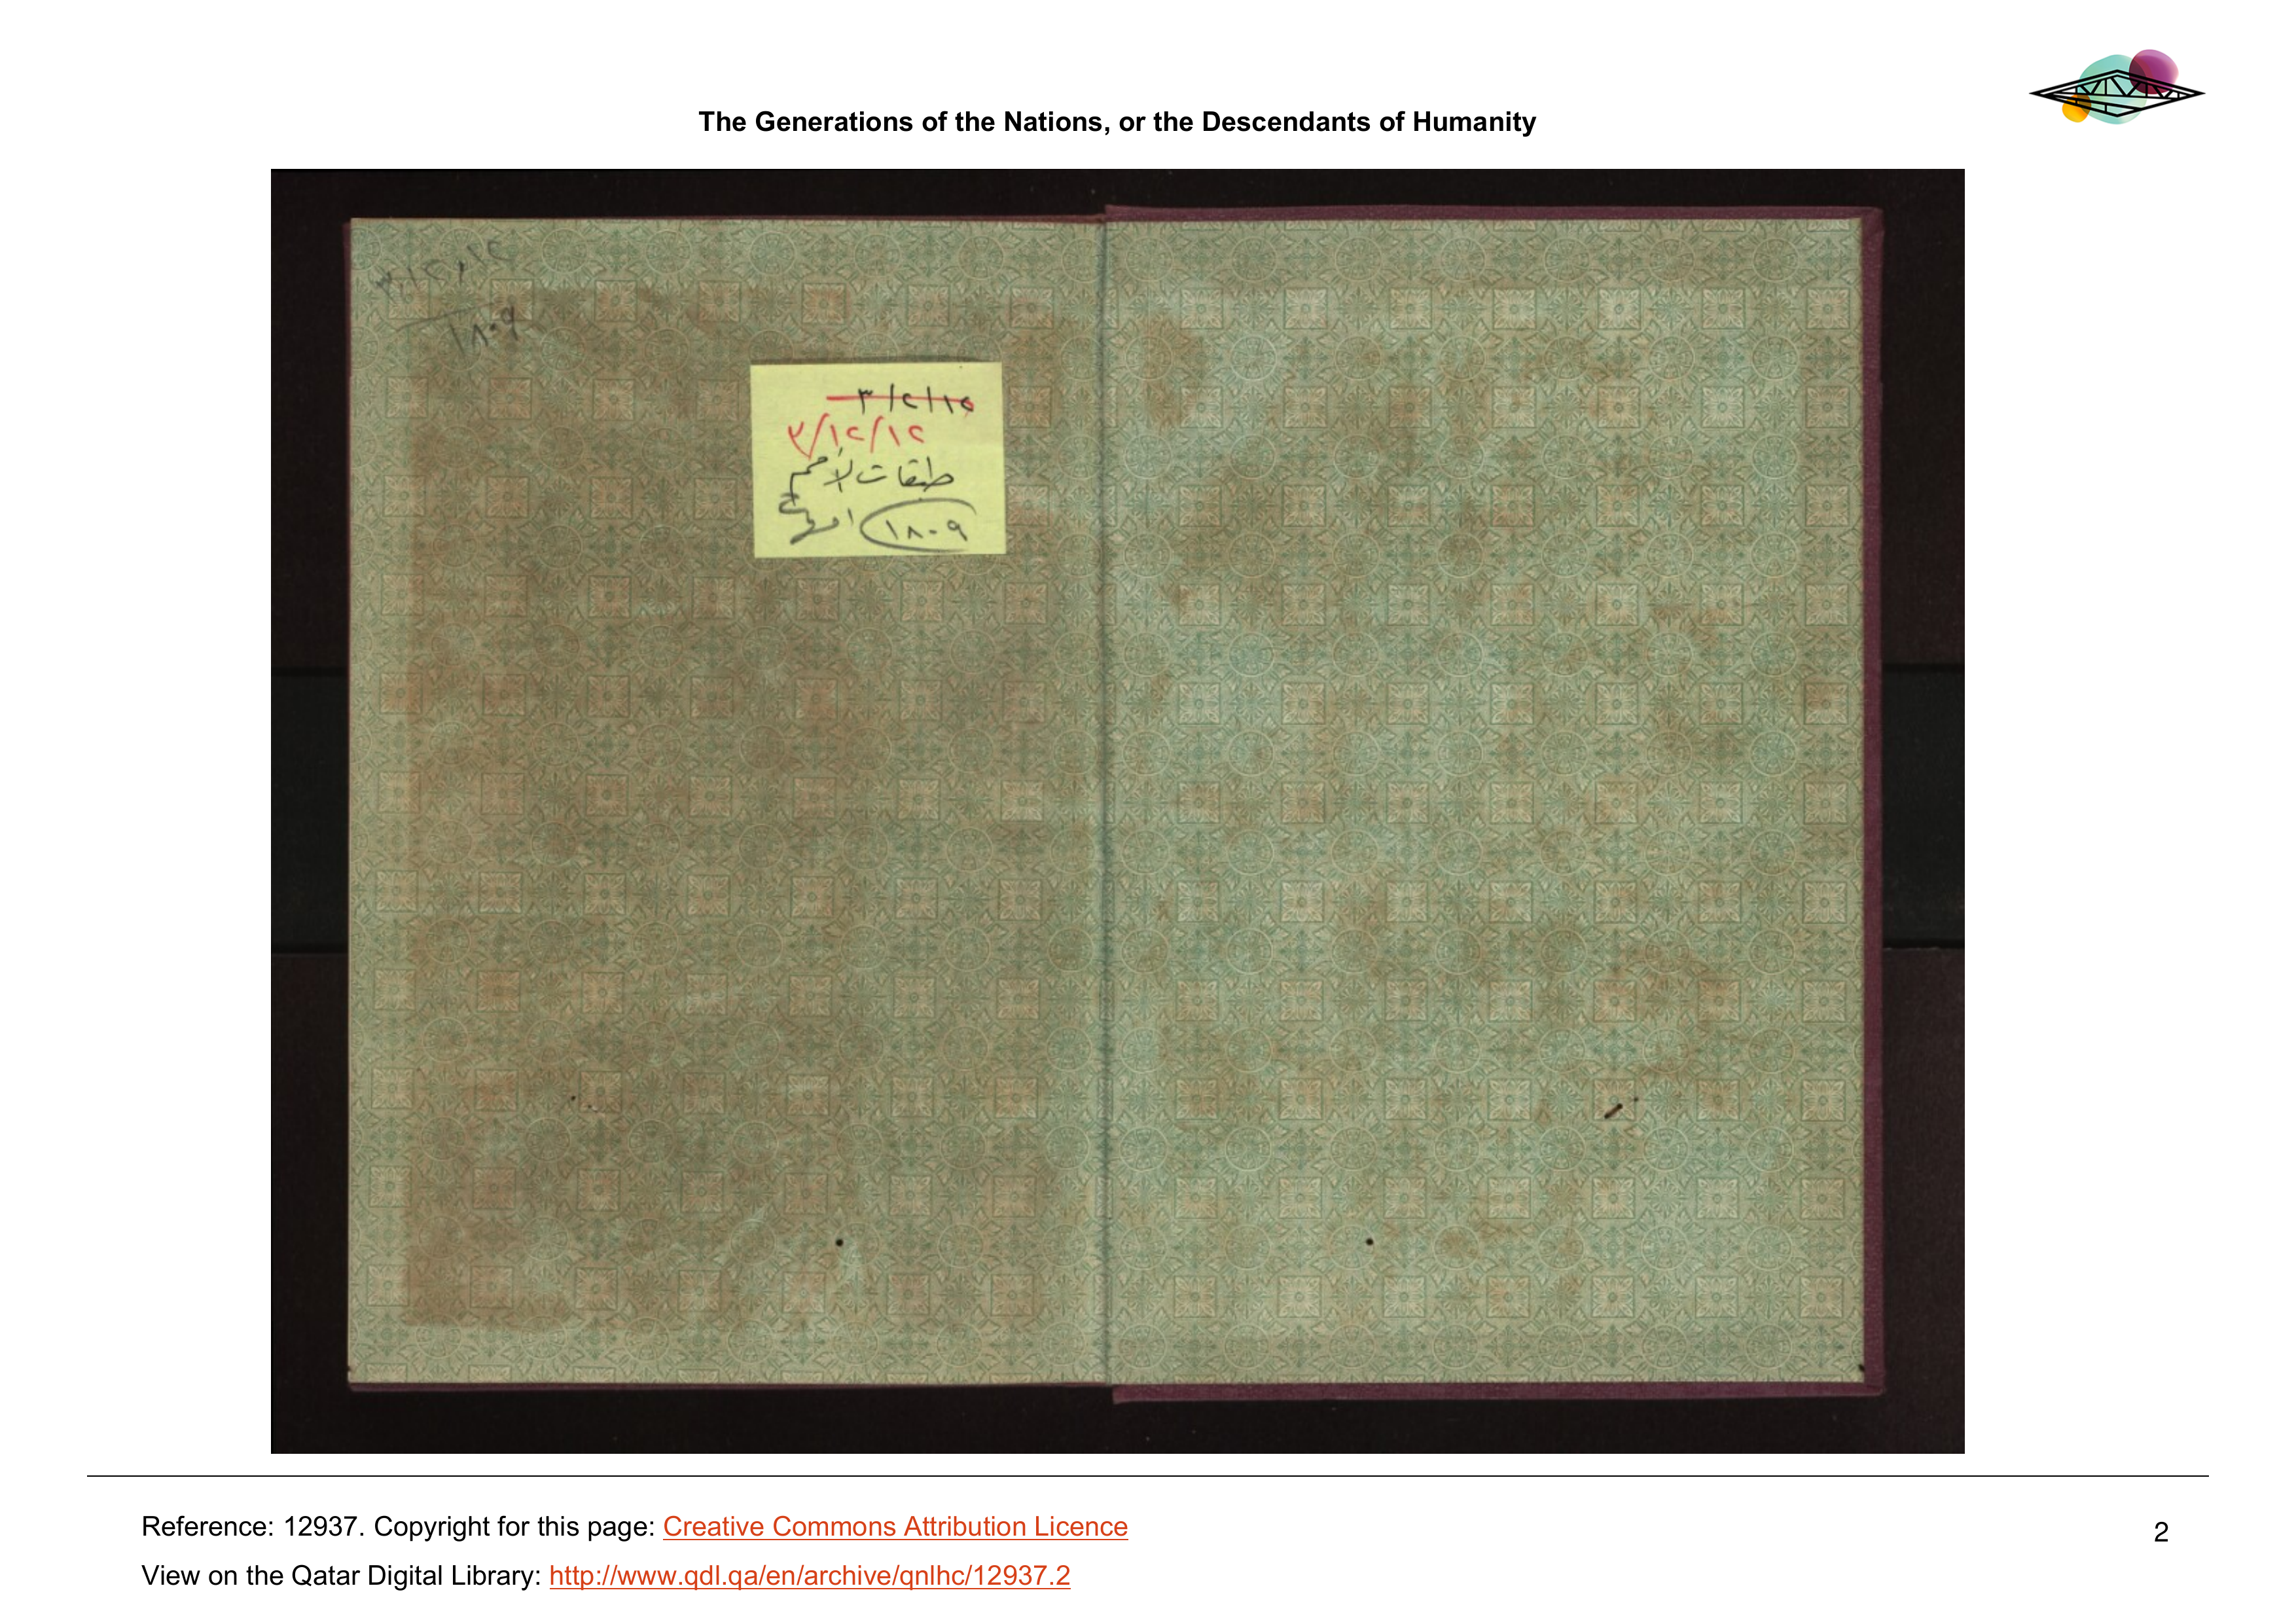 The Generations of the Nations, or the Descendants of Humanity
١٨٠٩
٣/٢/١٥
٣/١٢/١٢
طبقات الأمم
١٨٠٩
Reference: 12937. Copyright for this page: Creative Commons Attribution Licence
2
View on the Qatar Digital Library: http://www.qdl.qa/en/archive/qnlhc/12937.2